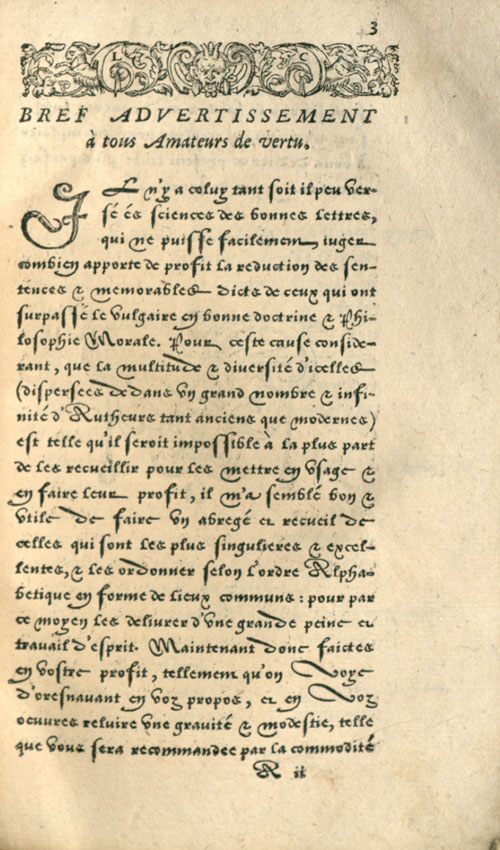 3
BREF ADVERTISSEMENT
à tous Amateurs de vertu.
IL n'y a celuy tant soit il peu ver-
sé és sciences des bonnes lettres,
qui ne puisse facilement iuger
combien apporte de profit la reduction des sen-
tences & memorables dicts de ceux qui ont
surpassé le vulgaire en bonne doctrine & Phi-
losophie Morale. Pour ceste cause conside-
rant, que la multitude & diversité d'icelles
(dispersees dedans vn grand nombre & infi-
nité d'Autheurs tant anciens que modernes)
est telle qu'il seroit impossible à la plus part
de les recueillir pour les mettre en vsage &
en faire leur profit, il m'a semblé bon &
vtile de faire vn abregé et recueil de
celles qui sont les plus singulieres & excel-
lentes, & les ordonner selon l'ordre Alpha-
betique en forme de lieux communs : pour par
ce moyen les delivrer d'vne grande peine et
travail d'esprit. Maintenant donc faictes
en vostre profit, tellement qu'on voye
d'oresnavant en voz propos, et en voz
oeuvres reluire vne gravité & modestie, telle
que vous sera recommandee par la commodité
A ii